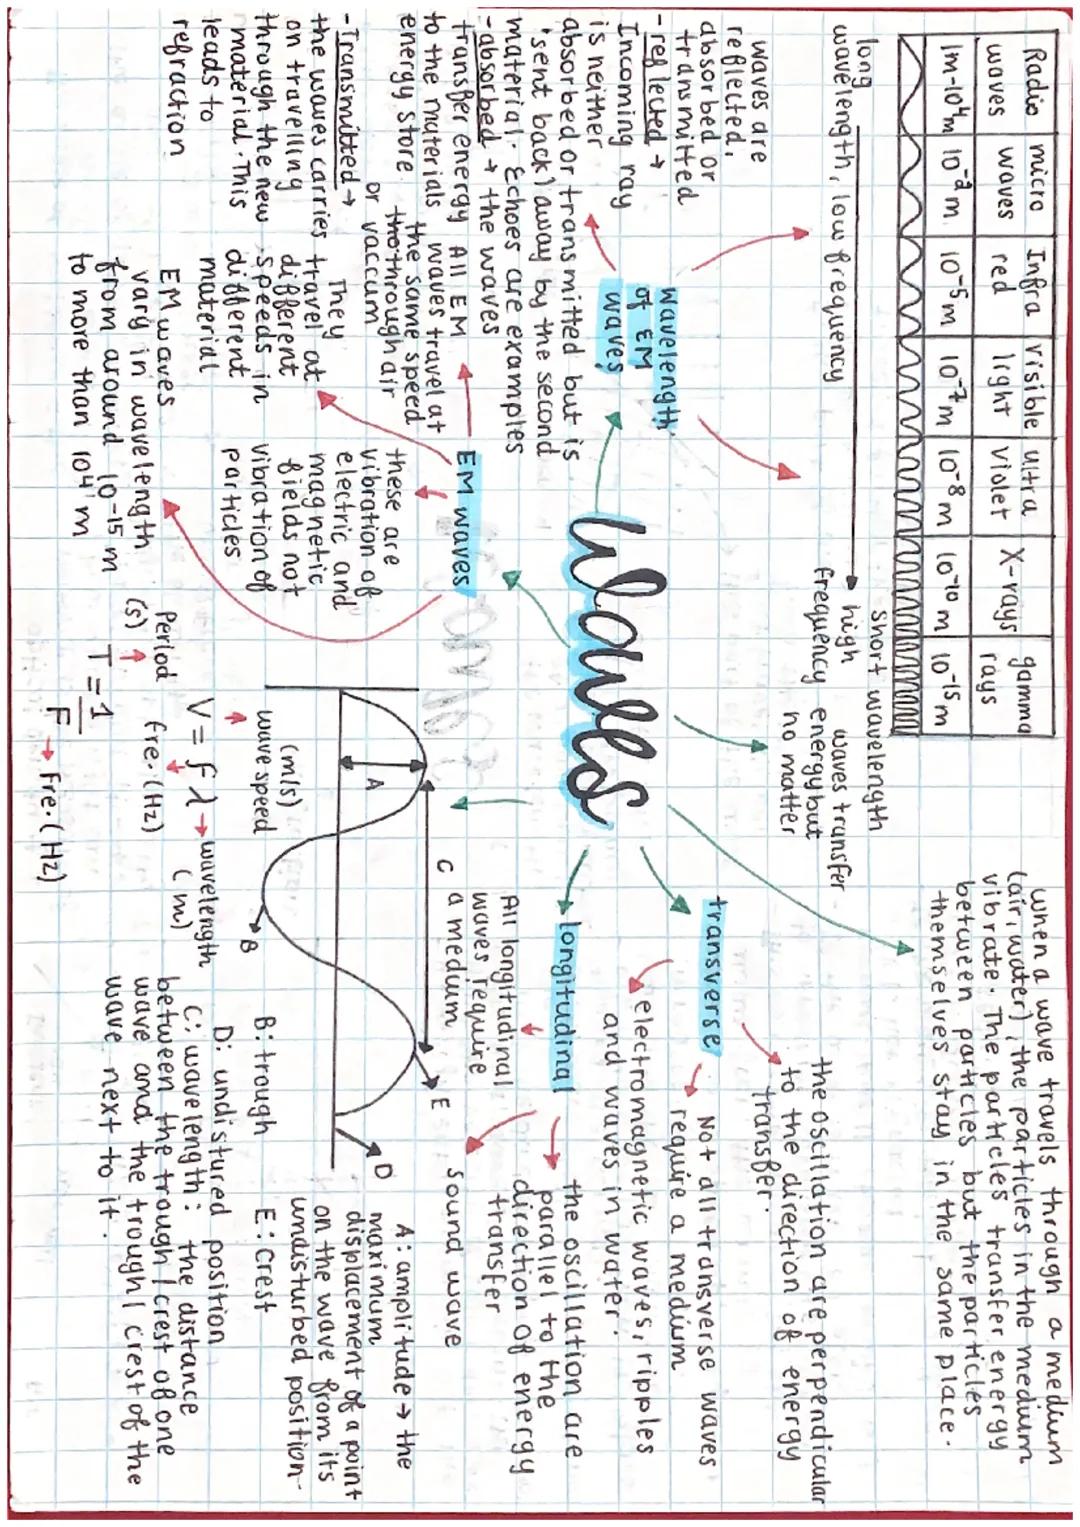 Waves
Radio waves
micro waves
Infra red
visible light
ultra violet
X-rays
gamma rays
1m-10⁴m
10⁻²m
10⁻⁵m
10⁻⁷m
10⁻⁸m
10⁻¹⁰m
10⁻¹⁵m
long
wavelength, low frequency
short wavelength
high
frequency
wavelength
of EM
waves
waves are
absorbed or
transmitted
reflected.
- reflected →
Incoming ray
is neither
absorbed or transmitted but is
'sent back) away by the second
material. Echoes are examples
- absorbed → the waves
transfer energy
to the materials
energy store
- Transmitted →
the waves carries
on travelling
through the new
material. This
leads to
refraction
EM waves
All EM
waves travel at
the same speed
through air
or vaccum
They
travel at
different
speeds in
different
material
these are
vibration of
electric and
magnetic
fields not
vibration of
particles
EM waves
vary in wavelength
from around 10⁻¹⁵m
to more than 10⁴m
waves transfer
energy but
no matter
when a wave travels through a medium
(air, water), the particles in the medium
vibrate. The particles transfer energy
between particles but the particles
themselves stay in the same place.
transverse
the oscillation are perpendicular
to the direction of energy
transfer.
Not all transverse waves
require a medium
electromagnetic waves, ripples
and waves in water.
longitudinal
the oscillation are
parallel to the
direction of energy
transfer
All longitudinal
waves require
a medium
sound wave
A
B
C
D
E
A: amplitude → the
maximum
displacement of a point
on the wave from its
undisturbed position.
B: trough
E: Crest
D: undistured position
C: wavelength: the distance
between the trough / crest of one
wave and the trough / crest of the
wave next to it.
(m/s)
wave speed
V = f λ → wavelength
(m)
fre. (Hz)
Period
(s)
T = 1
F → Fre. (Hz)